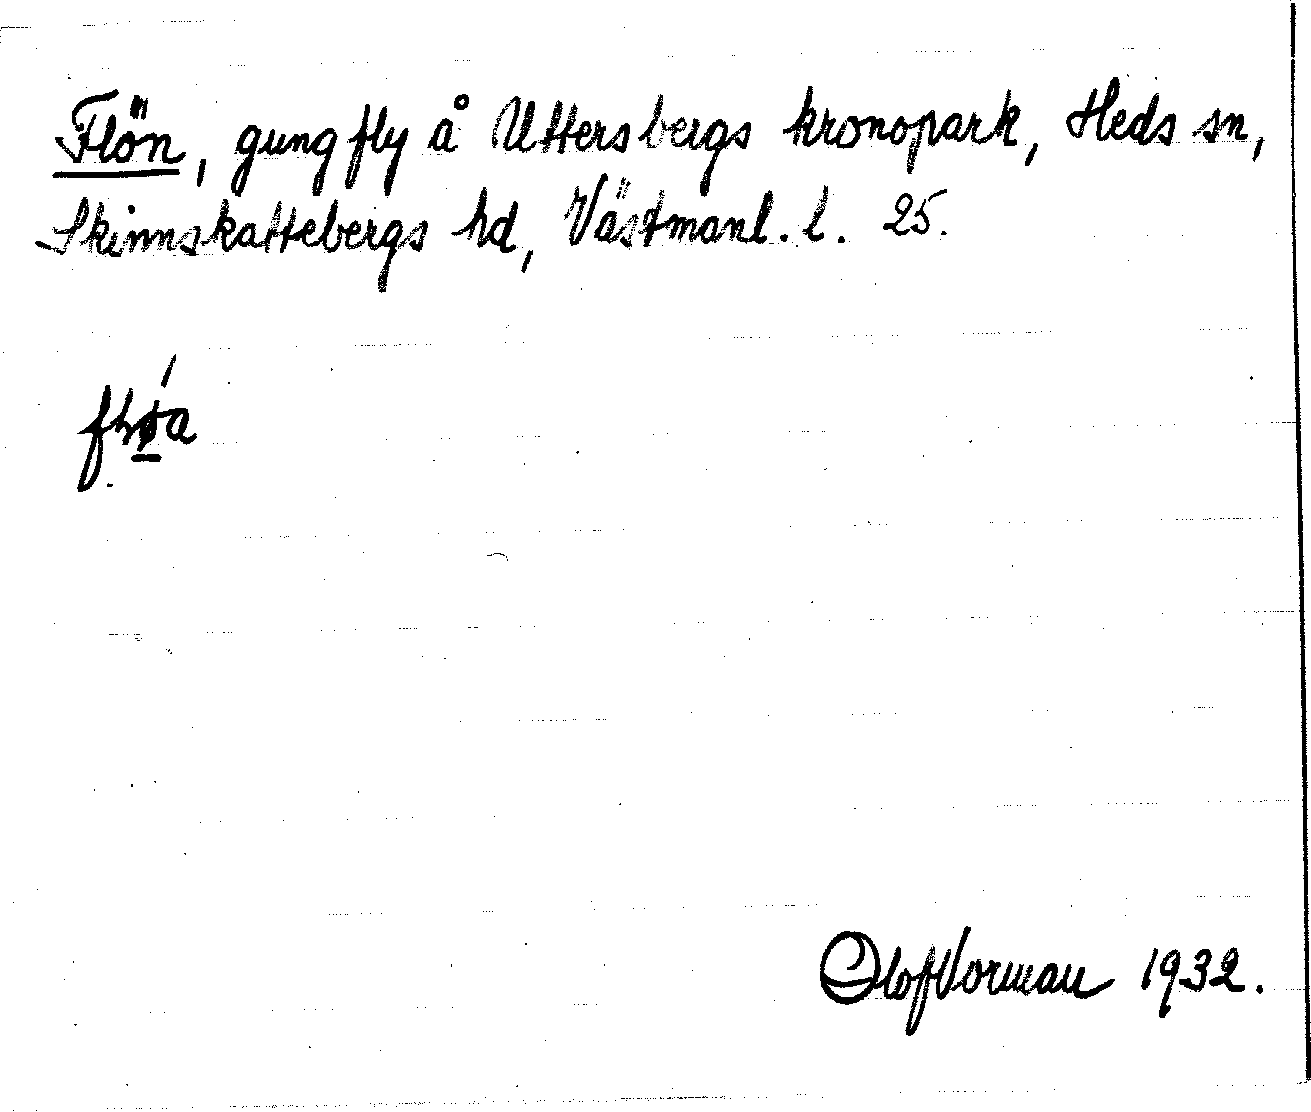 Flön, gungfly å Uttersbergs kronopark, Heds sn,
Skinnskattebergs hd, Västmanl. l. 25.
Olof Vorman 1932.